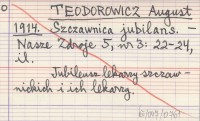 TEODOROWICZ August
1914. Szczawnica jubilans. –
Nasze Zdroje 5, nr 3: 22-24,
il.
Jubileusz lekarzy szczaw-
nickich i ich lekarzy.